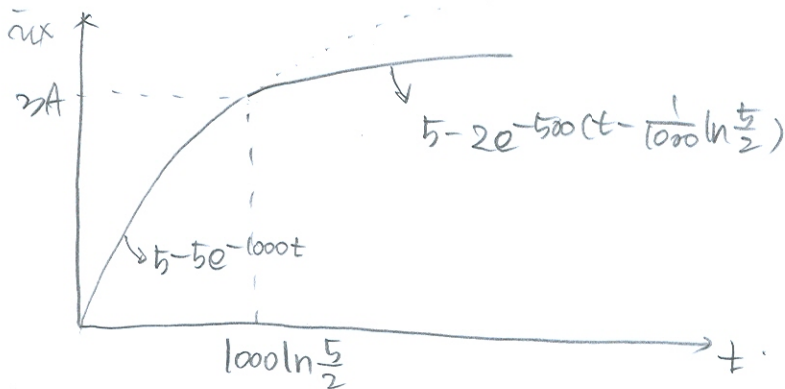 iux
3A
5-2e^-500(t-1/1000 ln 5/2)
5-5e^-1000t
1000ln 5/2
t.